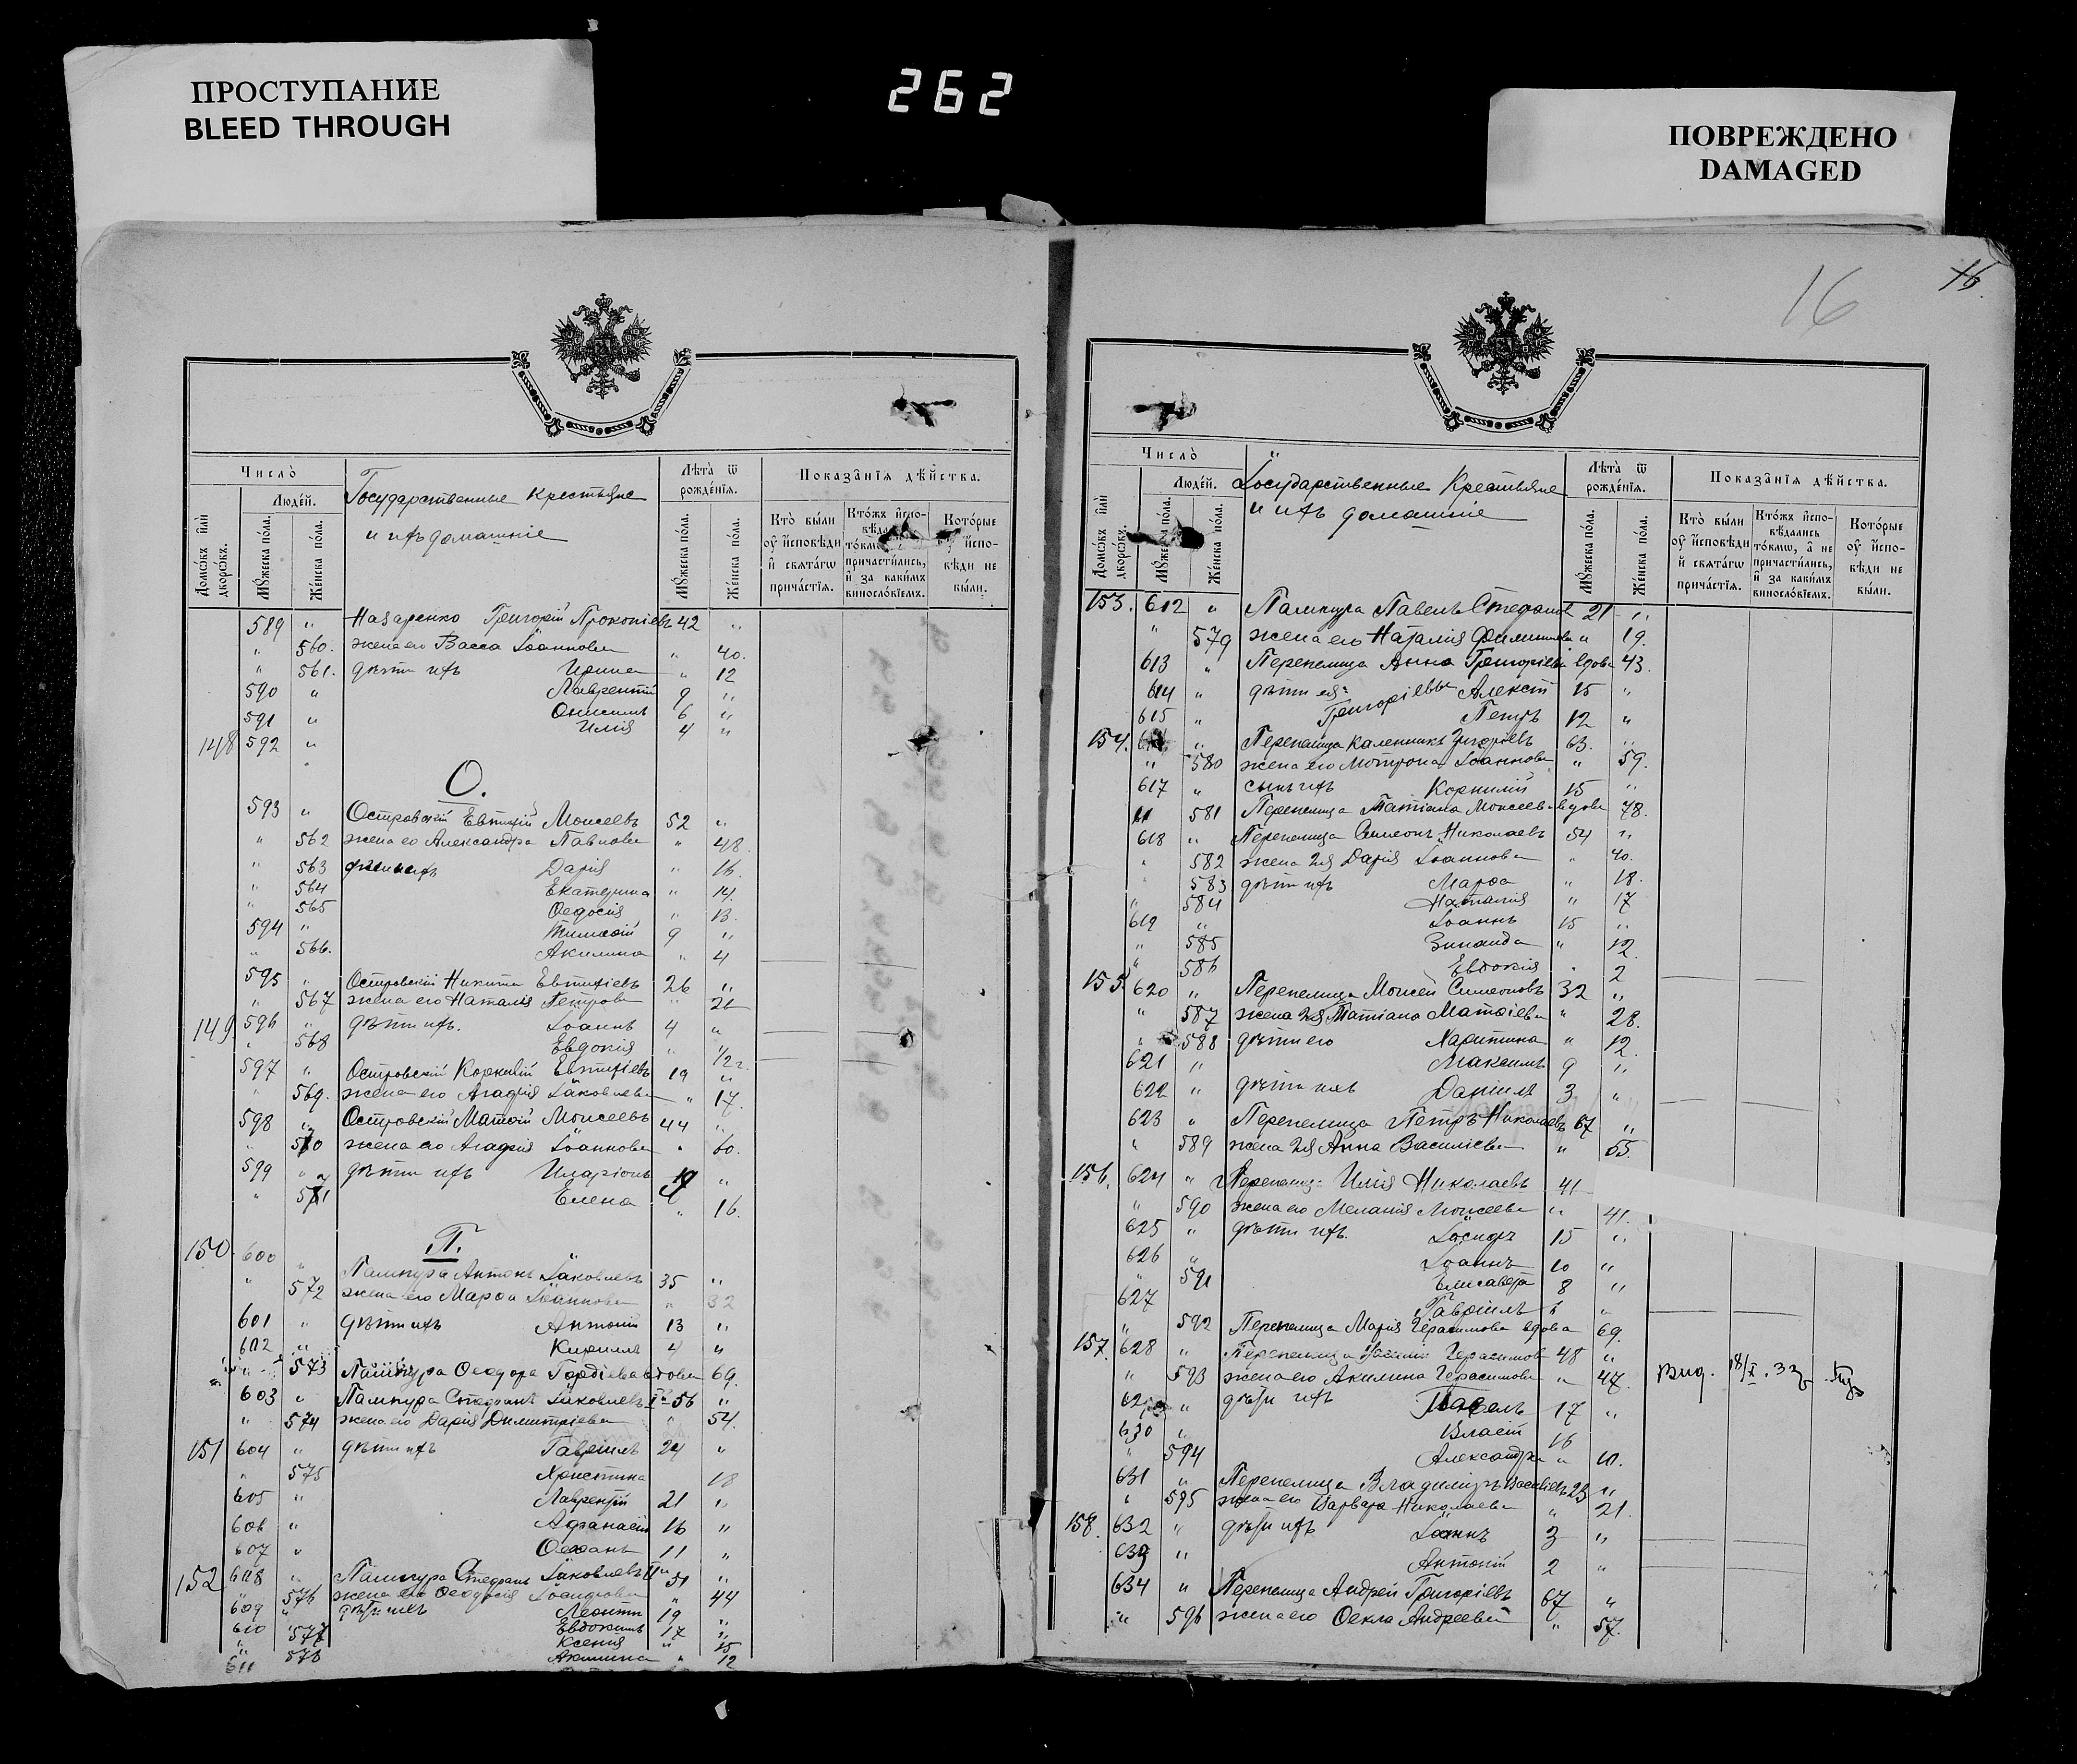 ПРОСТУПАНИЕ
BLEED THROUGH
262
ПОВРЕЖДЕНО
DAMAGED
Число̀
Людей.
Домѡ́въ и҆лѝ дворѡ́въ.
Мꙋ́жеска по́ла.
Же́нска по́ла.
Государственные крестьяне
и ихъ домашніе
Лѣта̀ ѿ рожде́нїѧ.
Мꙋ́жеска по́ла.
Же́нска по́ла.
Показа̑нїѧ дѣ́йства.
Кто̀ бы́ли оу҆ и҆сповѣ́ди и҆ свѧта́гѡ прича́стїѧ.
Которые
589 " Назаренко Григорій Прокопіевъ 42 "
" 560. жена его Васса Іоаннова " 40.
" 561. дѣти ихъ Ирина " 12
590 " Лаврентій 9 "
591 " Онисимъ 6 "
148 592 " Илія 4 "
О.
593 " Островскій Евтихій Моисеевъ 52 "
" 562 жена его Александра Павлова " 48.
" 563 Дарія " 16.
" 564 Екатерина " 14.
" 565 Ѳеодосія " 13.
594 " 9 "
" 566. Акилина " 4
595 " Островскій Никита Евтихіевъ 26 "
" 567 жена его Наталія Петрова "
149. 596 " дѣти ихъ. Іоаннъ 4 "
" 568 Евдокія " 1/2 г.
597 " Островскій Корнилій Евтихіевъ 19 "
" 569. жена его Агафія Іаковлева " 17.
598 " Островскій Матѳій Моисеевъ 44 "
" 570 жена его Агафія Іоаннова "
599 " дѣти ихъ Иларіонъ "
" 571 Елена " 16.
П.
150. 600 " Палипура Антонъ Іаковлевъ 35 "
" 572 жена его Марѳа Іоаннова " 32
601 " дѣти ихъ Антоній 13 "
602 " Кириллъ 4 "
" 573 Ѳеодора Гордіева вдова 69.
603 " Стефанъ Іаковлевъ Iй 56 "
" 574 жена его Дарія Димитріева " 54.
151 604 " дѣти ихъ Гавріилъ 24 "
" 575 Христина 18
605 " Лаврентій 21 "
606 " Аѳанасій 16 "
607 " 11 "
152 608 " Стефанъ Іаковлевъ IIй 51 "
" 576 жена его Ѳеодосія Іосифова " 44
609 " дѣти ихъ Леонтій 19 "
610 " Евдокимъ 17 "
" 577 Ксенія " 15
611 578 Акилина " 12
16
16.
Число̀
Людей.
Домѡ́въ и҆лѝ дворѡ́въ.
Мꙋ́жеска по́ла.
Же́нска по́ла.
Государственные Крестьяне
и ихъ домашніе
Лѣта̀ ѿ рожде́нїѧ.
Мꙋ́жеска по́ла.
Же́нска по́ла.
Показа̑нїѧ дѣ́йства.
Кто̀ бы́ли оу҆ и҆сповѣ́ди и҆ свѧта́гѡ прича́стїѧ.
Кто́жъ и҆спо-вѣ́дались то́кмѡ, а҆ не причасти́лись, и҆ за каки́мъ винослов́їемъ.
Кото́рые оу҆ и҆спо-вѣди не бы́ли.
153. 612 " Павелъ Стефановъ 21 "
" 579 жена его Наталія " 19.
613 " Перепелица Анна Григоріева вдова 43.
614 " дѣти ея: Григоріевы Алексій 15 "
615 " Петръ 12 "
154. " Перепелица Каленникъ Григоріевъ 63. "
" 580 жена его Мотрона Іоаннова " 59.
617 " сынъ ихъ Корнилій 15 "
" 581 Перепелица Татіана Моисеева вдова 78.
618 " Перепелица Симеонъ Николаевъ 54 "
" 582 жена 2я Дарія Іоаннова " 40.
583 дѣти ихъ Марѳа " 18.
" 584 Наталія " 17
619 " Іоаннъ 15 "
" 585 Зинаида " 12
" 586 Евдокія " 2
155. 620 " Перепелица Моисей Симеоновъ 32 "
" 587 жена 2я Татіана Матѳіева " 28.
" 588 дѣти его Харитина " 12.
621 " Максимъ 9 "
622 " дѣти ихъ Даніилъ 3 "
623 " Перепелица Петръ Николаевъ 67 "
" 589 жена 2я Анна Василіева " 55.
156. 624 " Перепелица Илія Николаевъ 41
" 590 жена его Меланія Моисеева " 41.
625 " дѣти ихъ. Іосифъ 15 "
626 " Іоаннъ 10 "
" 591 Елисавета 8 "
627 Гавріилъ "
" 592 Перепелица Марія Герасимова вдова 69.
157. 628 " Перепелица Герасимовъ 48 "
" 593 жена его Акилина Герасимова " 47. Вид. 18/X.
" дѣти ихъ Павелъ 17 "
630 " Власій 16
" 594 Александра "
631 " Перепелица Владиміръ Василіевъ 23 "
" 595 жена его Варвара Николаева " 21.
158. 632 " дѣти ихъ Іоаннъ 3 "
633 " Антоній 2 "
634 " Перепелица Андрей Григоріевъ 67 "
" 596 жена его Ѳекла Андреева " 57.